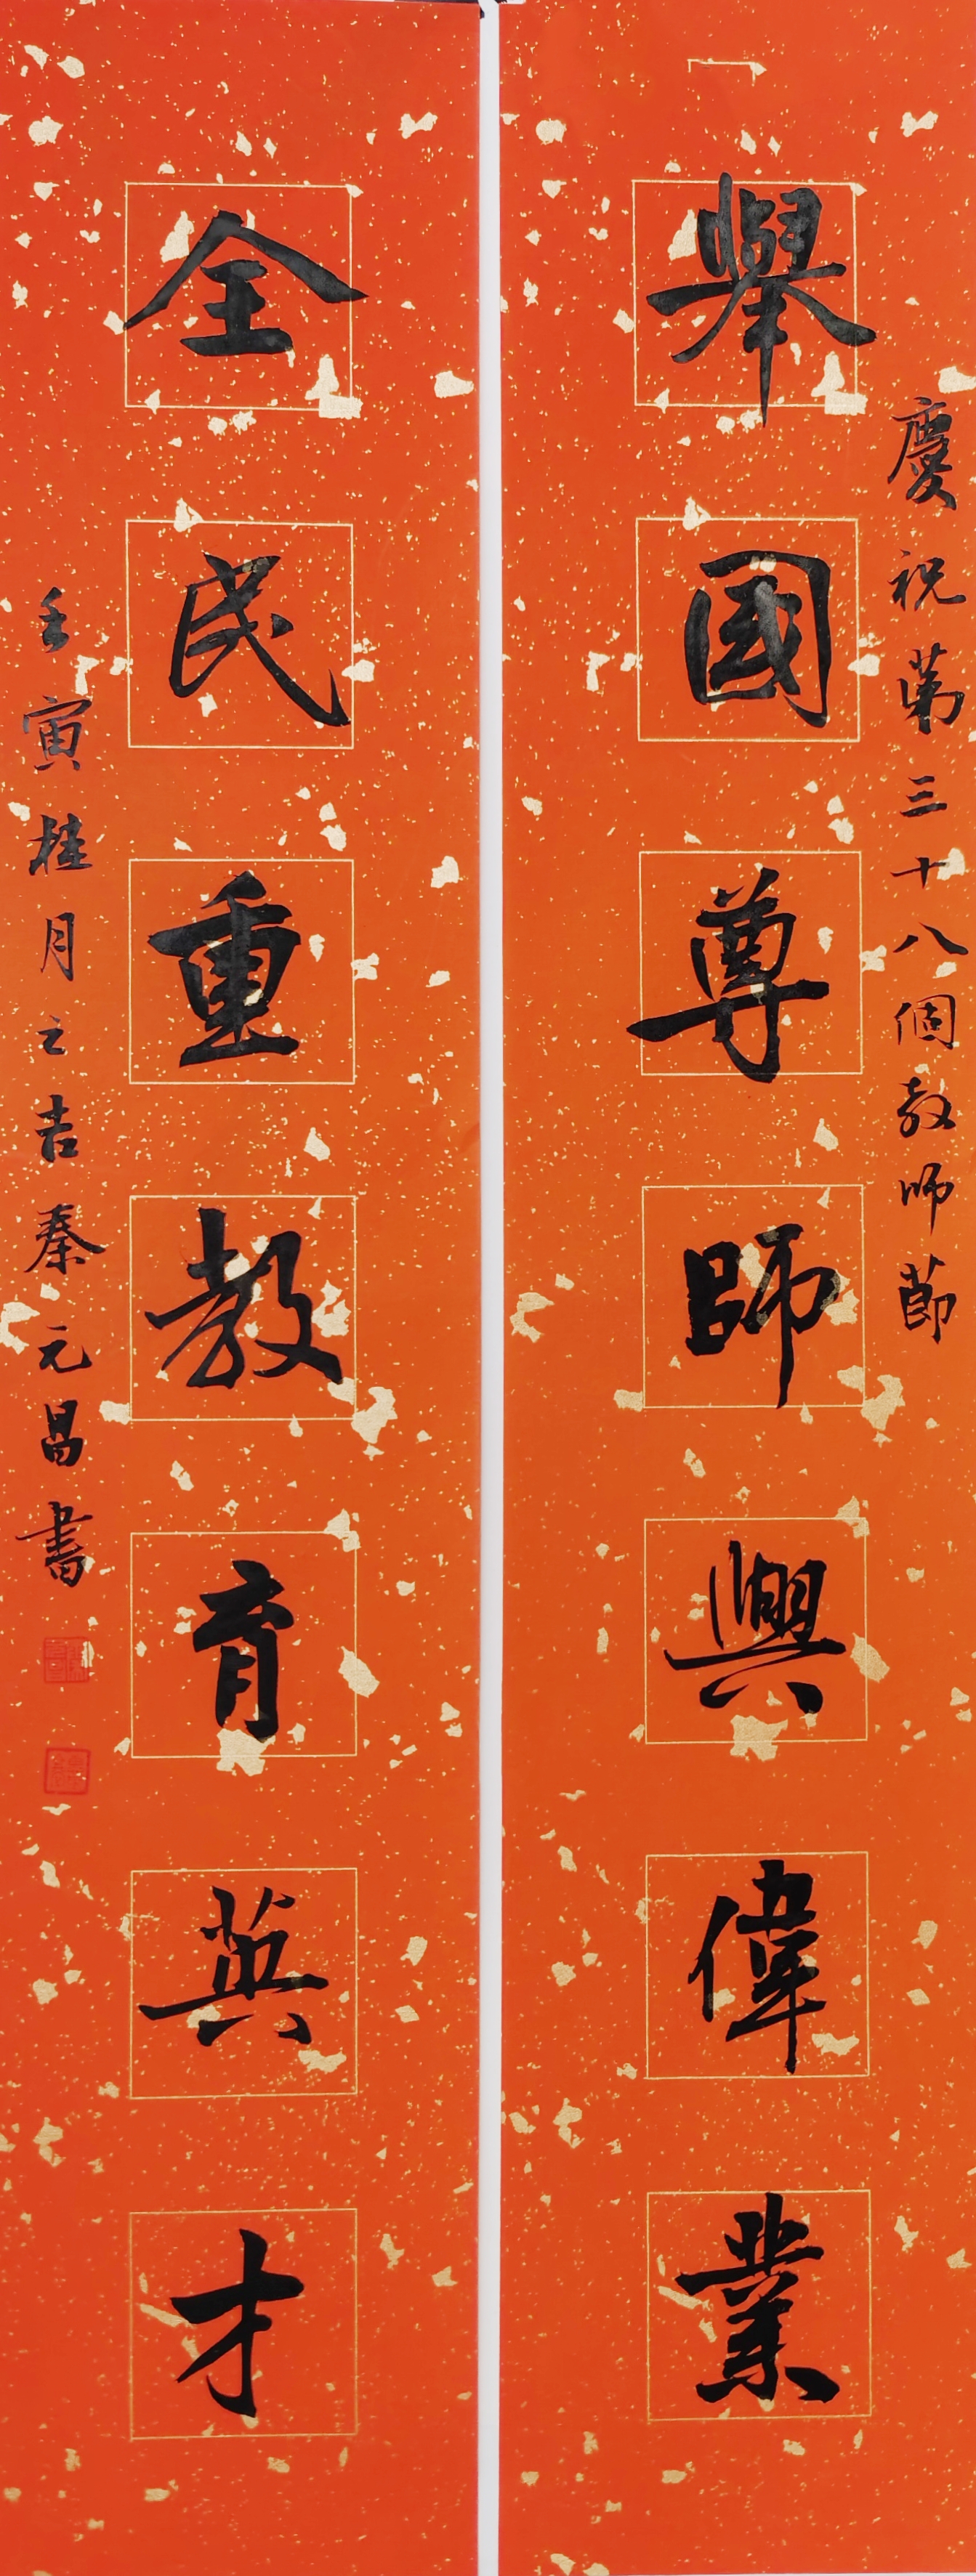 慶祝第三十八個教師節
舉國尊師興偉業
全民重教育英才
壬寅桂月之吉秦元昌書